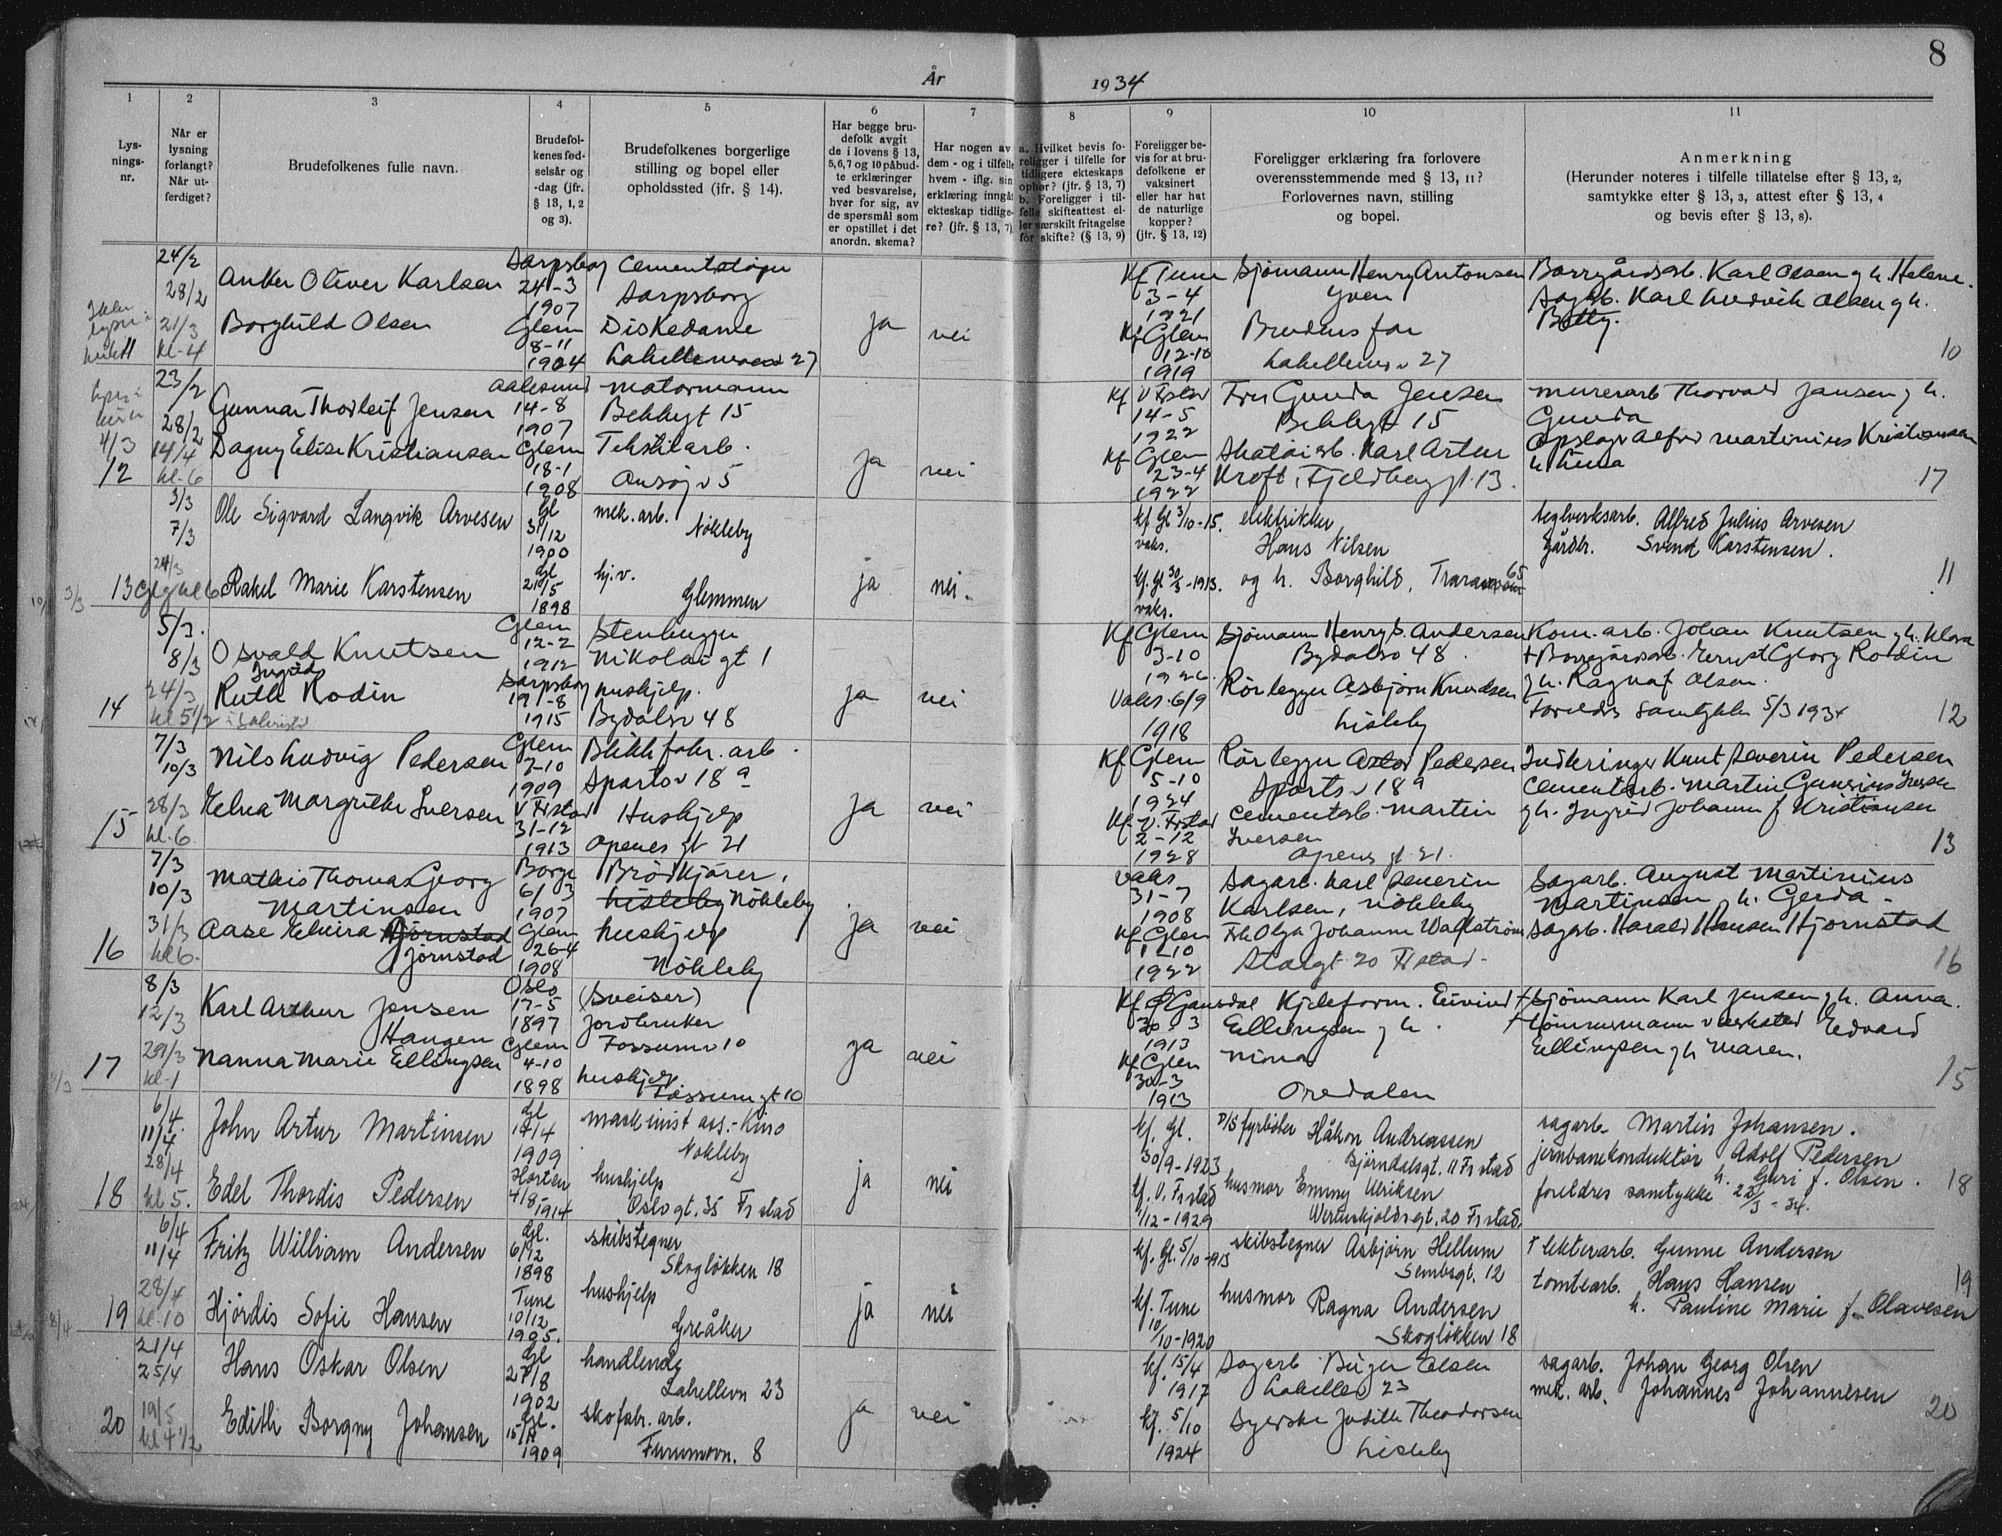 8
År 1934
1 2 3 4 5 6 7 8 9 10 11
Lysnings-nr.
Når er lysning forlangt? Når utferdiget?
Brudefolkenes fulle navn.
Brudefolkenes fødselsår og -dag (jfr. § 13, 1, 2 og 3).
Brudefolkenes borgerlige stilling og bopel eller opholdssted (ifr. § 14).
Har begge brudefolk avgit de i lovens § 13, 5, 6, 7 og 10 påbudte erklæringer ved besvarelse, hver for sig, av de spørsmål som er opstillet i det anordn. skema?
Har nogen av dem - og i tilfelle hvem - iflg. sin erklæring inngåt ekteskap tidligere? (jfr. § 13, 7)
a. Hvilket bevis foreligger i tilfelle for tidligere ekteskaps ophør? (jfr. § 13, 7)
b. Foreligger i tilfelle skifteattest eller særskilt fritagelse for skifte? (§ 13, 9)
Foreligger bevis for at brudefolkene er vaksinert eller har hat de naturlige kopper? (jfr. § 13, 12)
Foreligger erklæring fra forlovere overensstemmende med § 13, 11? Forlovernes navn, stilling og bopel.
Anmerkning
(Herunder noteres i tilfelle tillatelse efter § 13, 2, samtykke efter § 13, 3, attest efter § 13, 4 og bevis efter § 13, 8).
11 24/2 28/2 Anker Oliver Karlsen Sarpsborg 24-3 1907 Sarpsborg Kf Tune 3-4 1921 Sjømann Henry Antonsen Yven Borregårdsarb. Karl Olsen g h. Helene
21/3 kl-4 Borghild Olsen Glem 8-11 1904 Diskedame 27 ja nei Kf Glem 12-10 1919 Brudens far 27 Sagarb. Karl Ludvik Olsen g h. Betty. 10
4/3 12 23/2 28/2 Gunnar Thorleif Jensen Aalesund 14-8 1907 motormann 15 Kf V Frstad 14-5 1922 Fru Gunda Jensen 15 murerarb Thorvald Jansen g h. Gunda
14/4 kl-6 Dagny Elise Kristiansen Glem 18-1 1908 Tekstilarb. 5 ja nei Kf Glem 23-4 1922 Karl Artur Kroft, Fjeldberg gt. 13. Alfred Martinius Kristiansen 17
13 3/3 7/3 Ole Sigvard Langvik Arvesen Gl 31/12 1900 mek. arb. Nökleby kf. Gl 3/10-15. vaks. elektriker Hans Nilsen teglverksarb. Alfred Julius Arvesen
24/3 Rakel Marie Karstensen Gl 21/5 1898 hj.v. Glemmen ja nei. kf. Gl 30/3-1913. vaks. og h. Borghild, 65 Gårdbr. Svend Karstensen. 11
14 5/3. 8/3 Osvald Knutsen Glem 12-2 1912 Stenhugger Nikolai gt 1 Kf Glem 3-10 Sjömann Henry S. Andersen Bydalsv 48. Kom. arb. Johan Knutsen g h. Klara
24/3 kl 5 1/2 Ruth Ingrid Rodin Sarpsborg 19-8 1915 hushjelp. Bydalsv 48 ja nei Vaks 6/9 1918 Rörlegger Asbjørn Knudsen Lisleby + Borregårdsarb. Ernst Georg Rodin g h. Ragna f Olsen. Foreldres Samtykke 5/3 1934 12
15 7/3 10/3 Nils Ludvig Pedersen Glem 7-10 1909 Blikkfabr. arb. Sportsv 18 a Kf Glem 5-10 1924 Rörlegger Pedersen Sportsv 18 a Knut Severin Pedersen
28/3 kl. 6 Margrethe Iversen V Frstad 31-12 1913 Hushjelp Apenes gt 21 ja nei Kf. V. Frstad 2-12 1928 Cementarb. Martin Iversen Apenes gt 21. Cementarb. Martin Iversen g h. Ingrid Johanne f Kristiansen 13
16 7/3 10/3 Mathis Thomas Georg Martinsen Borge 6/3 1907 Brödkjörer, Lisleby Nökleby Vaks 31-7 1908 Sagarb. Karl Severin Karlsen, Nökleby Sagarb. August Martinius Martinsen g h. Gerda
31/3 kl 6. Aase Elvira Bjørnstad Hjørnstad Glem 26-4 1908 hushjelp Nökleby ja nei Kf Glem 1-10 1922 Frk Olga Johanne Wallstrøm Storgt 20 Frstad Sagarb. Harald Hansen Hjornstad 16
17 8/3 12/3 Karl Arthur Jensen Haugen Oslo 17-5 1897 (Sveiser) Jordbruker Fossumv 10 1913 Eivind Ellingsen g h. + Sjömann Karl Jensen g h. Anna.
29/3 kl-1 Nanna Marie Ellingsen Glem 4-10 1898 hushjelp Fossum gt 10 ja nei Kf Glem 30-3 1913 Nina Oredalen + tömmermann Edvard Ellingsen g h Maren. 15
18 6/4. 11/4 John Artur Martinsen Gl 1909 maskinist ass. - Kino Nökleby kf. Gl. 30/9-1923 D/S fyrböter Håkon Andreassen Bjørndalsgt. 11 Frstad sagarb. Martin Johansen.
28/4 kl 5. Edel Thordis Pedersen Horten 4/8 1914 hushjelp Oslogt. 35 Frstad ja nei kf. V. Frstad 1/12-1929 husmor Emmy Ulriksen Werenskjoldsgt. 20 Frstad. jernbanekonduktør Adolf Pedersen h. Guri f. Olsen. foreldres samtykke 23/3-34. 18
19 6/4 11/4 Fritz William Andersen Gl. 6/12 1898 skibstegner Skogløkken 18 kf. Gl. 5/10-913 skibstegner Asbjørn Hellum Sembsgt. 12 Gunne Andersen
28/4 kl-10 Hjördis Sofie Hansen Tune 10/12 1905. hushjelp Greåker ja nei kf. Tune 10/10-1920 husmor Ragna Andersen Skogløkken 18 tomtearb. Hans Hansen h. Pauline Marie f. Olavesen 19
20 21/4 25/4 Hans Oskar Olsen Gl 27/8 1902 handlende Labellevn 23 kf. 15/4 1917 Sagarb Birger Olsen 23 sagarb. Johan Georg Olsen
19/5 kl 4 1/2 Edith Borgny Johansen Gl. 1909 skofabr. arb. Furumovn. 8 ja nei kf. 5/10 1924 Syerske Judith Theodorsen Lisleby mek. arb. Johannes Johannesen 20